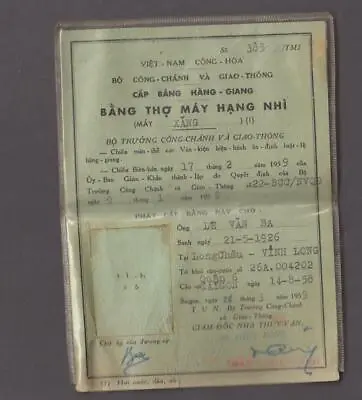 Số 383 /TMI
VIỆT-NAM CỘNG-HÒA
BỘ CÔNG-CHÁNH VÀ GIAO-THÔNG
CẤP BẰNG HÀNG-GIANG
BẰNG THỢ MÁY HẠNG NHÌ
(MÁY XĂNG ) (1)
BỘ TRƯỞNG CÔNG-CHÁNH VÀ GIAO-THÔNG
— Chiếu các Văn-kiện hiện-hành ấn-định luật-lệ
hàng-giang.
— Chiếu Biên-bản ngày 17 tháng 2 năm 1959 của
Ủy-Ban Giám-Khảo thành-lập do Quyết định của Bộ
Trưởng Công Chánh và Giao Thông số 22-BCC/
ngày 1 năm 195
PHÁT CẤP BẰNG NÀY CHO:
Ông LÊ VĂN BA
Sanh ngày 21-5-1926
Tại LongChâu - VĨNH LONG
Tờ khai căn-cước số 26A.004202
Quận 8
Cấp SAIGON ngày 14-8-58
Saigon, ngày 26 tháng 3 năm 1959
T.U.N. Bộ Trưởng Công-Chánh
và Giao-Thông
GIÁM ĐỐC NHA THỦY-VẬN
Chữ ký của đương-sự